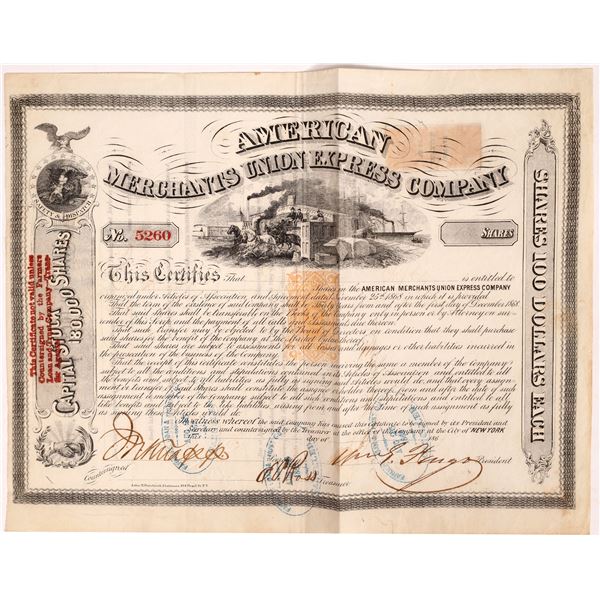 AMERICAN
MERCHANTS UNION EXPRESS COMPANY
SAFETY & DISPATCH
No. 5260
SHARES
This Certifies That is entitled to
Shares in the AMERICAN MERCHANTS UNION EXPRESS COMPANY
organized under Articles of Association and Agreement dated November 25th 1868 in which it is provided
That the term of the existence of said Company shall be thirty years from and after the first day of December 1868.
That said shares shall be transferable on the books of the Company only in person or by Attorney on
of this Scrip and the payment of all calls and assessments due thereon.
That such Transfer may be objected to by the Board of Directors on condition that they shall purchase
said shares for the benefit of the Company at the market
That said shares are subject to assessments for all losses, damages or other liabilities incurred in
the prosecution of the business of the Company.
That this Certificate constitutes the person owning the same a member of the Company
subject to all the conditions and stipulations of Articles of Association and entitled to all
the benefits and subject to all liabilities as fully as signing said Articles would do, and that every assign-
ment or transfer of said shall constitute the assignee and holder thereof from and after the date of such
assignment subject to all such conditions and stipulations and entitled to all
benefits and subject to the liabilities issuing from and after the time of such assignment as fully
as signing these Articles would do
In witness whereof the said Company has caused this certificate to be signed by its President and
Secretary and countersigned by the Treasurer at the office of the Company at the City of NEW YORK
this day of 186
President
Countersigned
Treasurer
CAPITAL STOCK
180,000 SHARES
This Certificate is not valid unless
Countersigned by the Farmers
Loan and Trust Company Trans-
fer Agents
SHARES 100 DOLLARS EACH